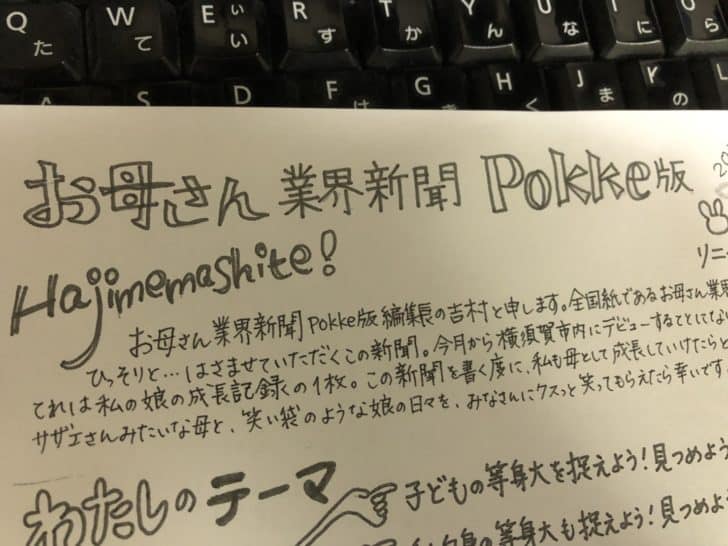 Q W E R T Y U I O
た て い ぃ す か ん な に ら
A S D F G H J K L
は き く ま の
お母さん業界新聞 Pokke版
Hajimemashite!
リニ
お母さん業界新聞Pokke版編集長の吉村と申します。全国紙であるお母さん業界
ひっそりと…はさませていただくこの新聞。今月から横須賀市内にデビューすることにしました
てれは私の娘の成長記録の1枚。この新聞を書く度に、私も母として成長していけたらと
サザエさんみたいな母と、笑い袋のような娘の日々を、みなさんにクスっと笑ってもらえたら幸いです。
わたしのテーマ
子どもの等身大を捉えよう!見つめよう
身の等身大も捉えよう!見つめよ